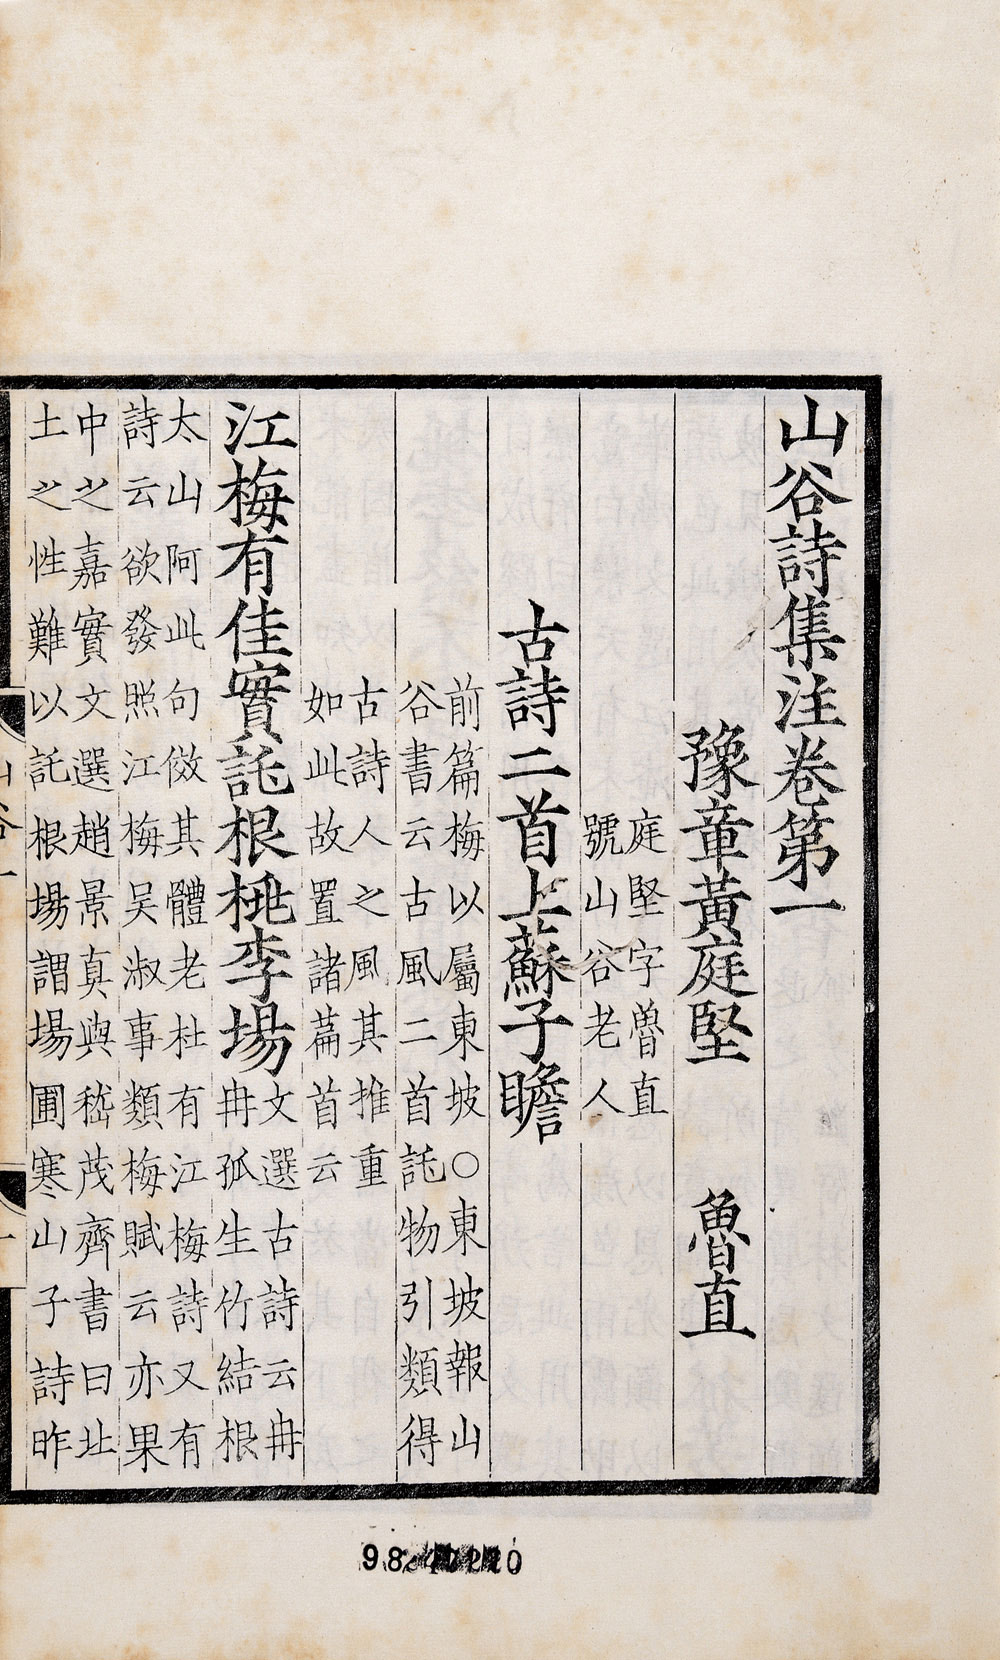 山谷詩集注卷第一
豫章黃庭堅　魯直
庭堅字魯直
號山谷老人
古詩二首上蘇子瞻
前篇梅以屬東坡○東坡報山
谷書云古風二首託物引類得
古詩人之風其推重
如此故置諸篇首云
江梅有佳實託根桃李場
文選古詩云冉
冉孤生竹結根
太山阿此句倣其體老杜有江梅詩又有
詩云欲發照江梅吴淑事類梅賦云亦果
中之嘉實文選趙景真與嵇茂齊書曰北
土之性難以託根場謂場圃寒山子詩昨
山谷一
一